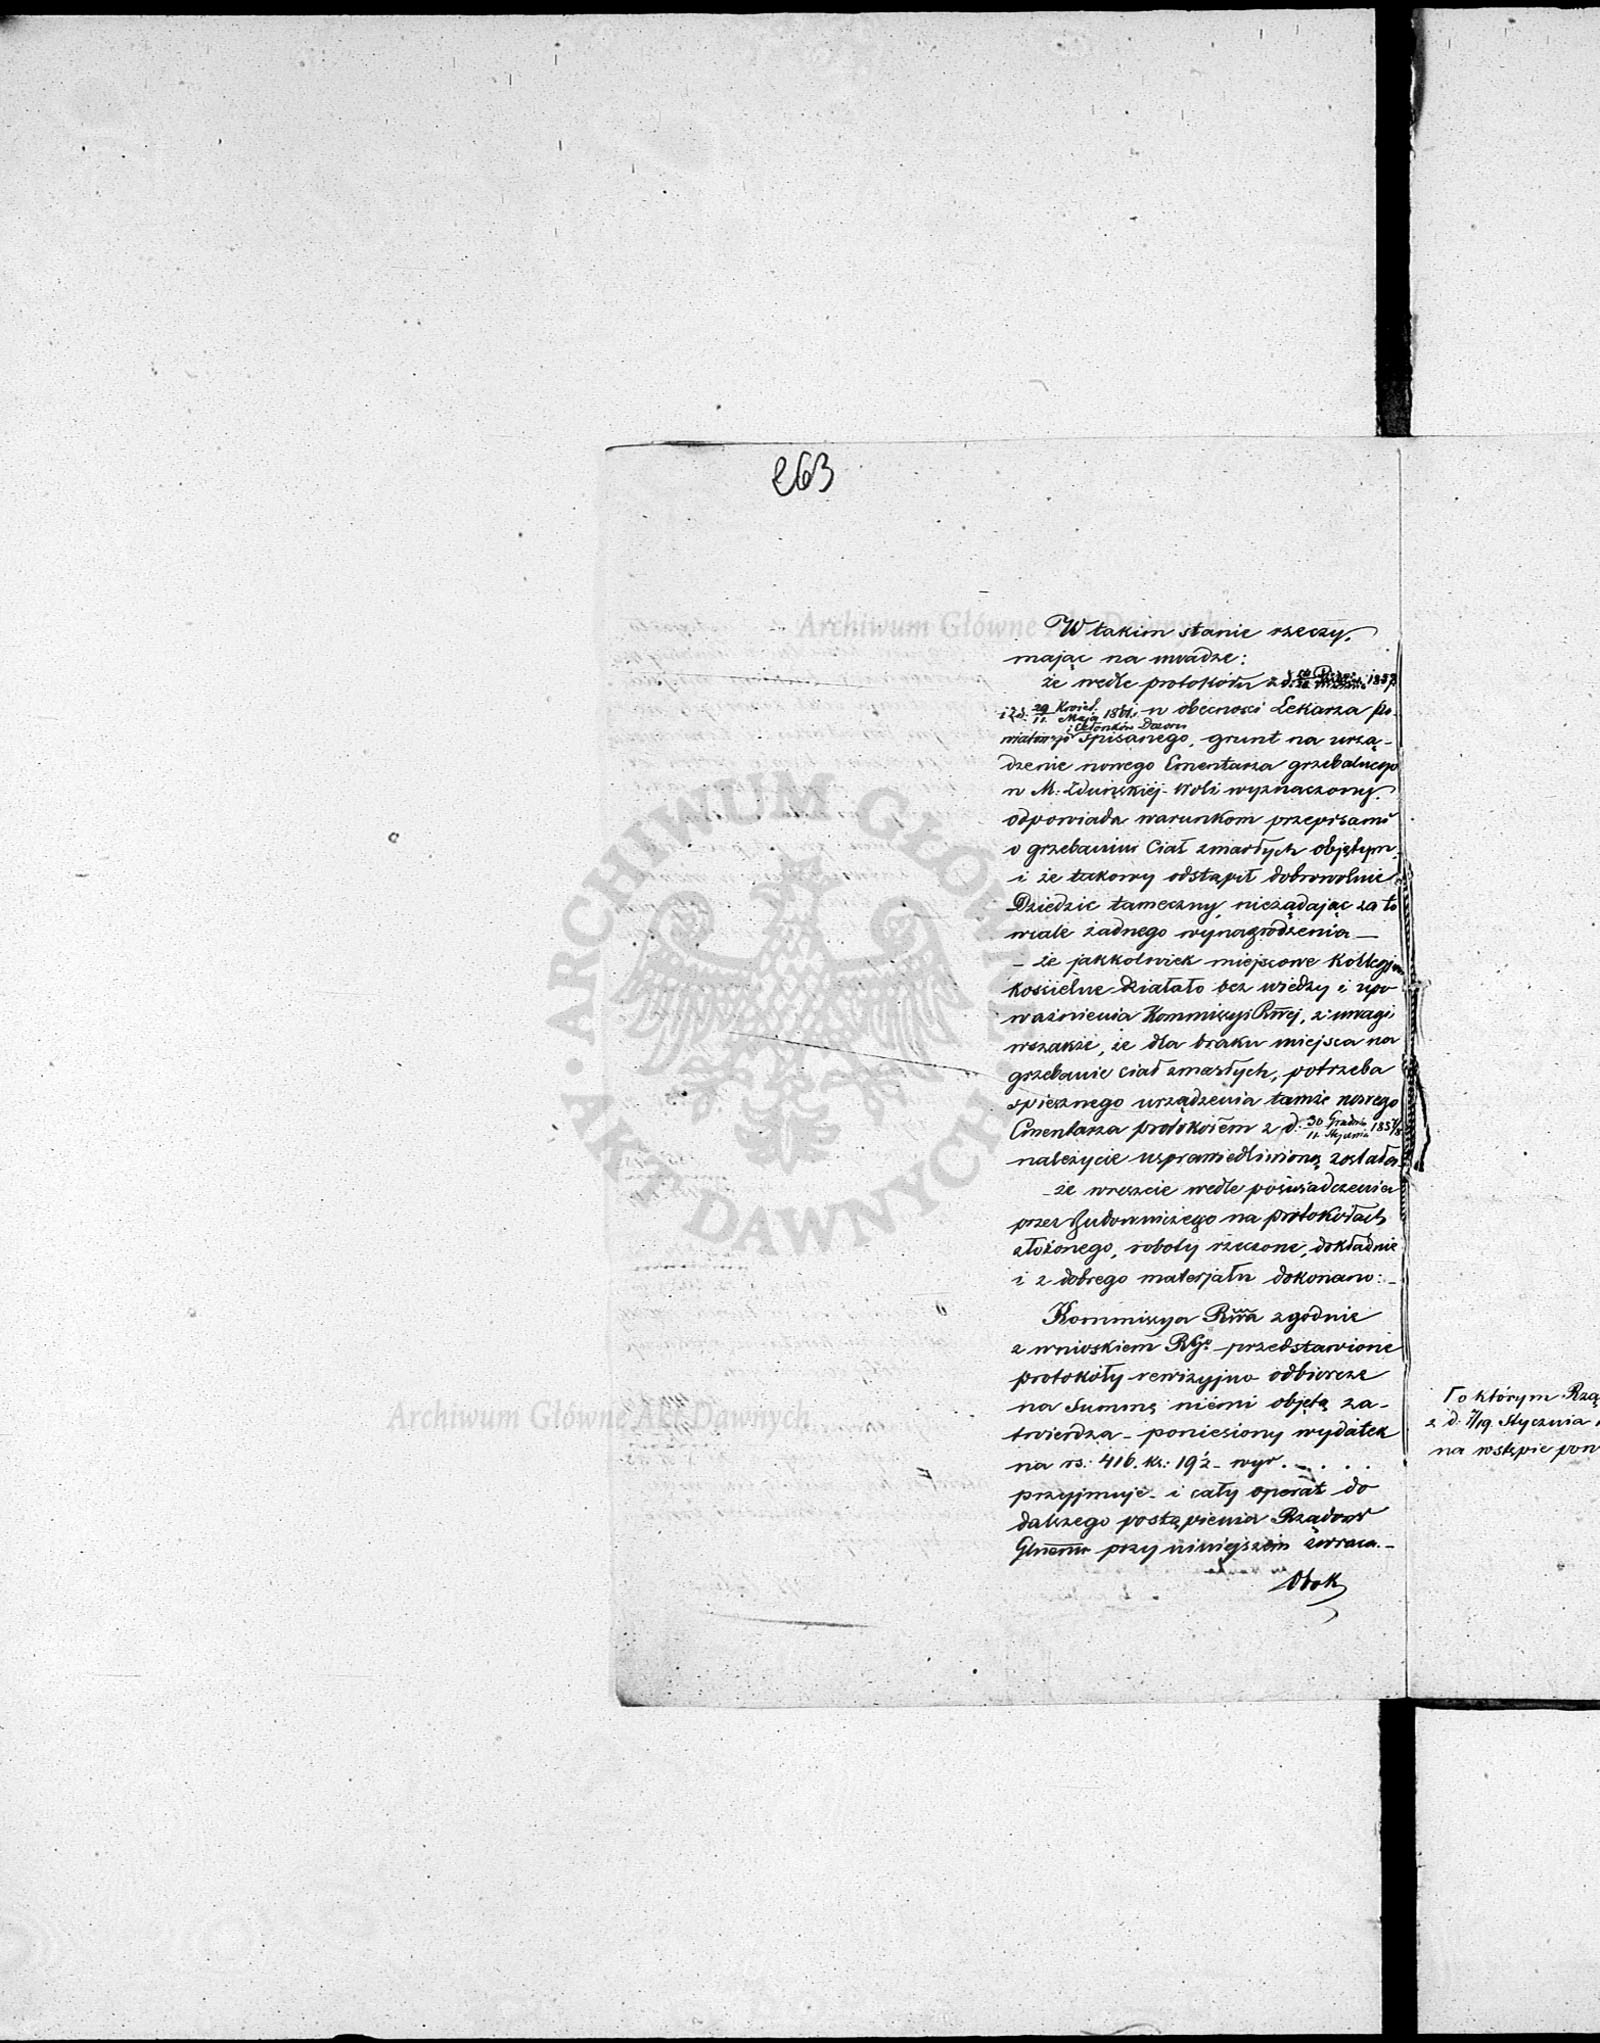 263
Archiwum Główne Akt Dawnych
W takim stanie rzeczy,
mając na uwadze:
że wedle protokółu z d. 1857
i z d. 29 Kwiet. / 11 Maja 1861, w obecności Lekarza Po-
wiatowego i Członków Dozoru spisanego, grunt na urzą-
dzenie nowego Cmentarza grzebalnego
w M: Zduńskiej-Woli wyznaczony,
odpowiada warunkom przepisami
o grzebaniu Ciał zmarłych objętym,
i że takowy odstąpił dobrowolnie
Dziedzic tameczny, nieżądając za to
wcale żadnego wynagrodzenia —
— że jakkolwiek miejscowe Kollegjum
Kościelne działało bez wiedzy i upo
ważnienia Kommissyi Rwej, z uwagi
wszakże, że dla braku miejsca na
grzebanie ciał zmarłych, potrzeba
spiesznego urządzenia tamże nowego
Cmentarza protokołem z d. 30 Grudnia / 11 Stycznia 1857/8
należycie usprawiedliwioną została
— że wreszcie wedle poświadczenia
przez Budowniczego na protokołach
złożonego, roboty rzeczone, dokładnie
i z dobrego materjału dokonano: —
Kommissya Rwa zgodnie
z wnioskiem RGgo przedstawione
protokóły rewizyjno odbiorcze
na Summę niemi objętą za-
twierdza — poniesiony wydatek
na rs: 416. k: 19½ — wyr. . . . .
przyjmuje — i cały operat do
dalszego postąpienia Rządowi
Glnemu przy niniejszém zwraca. —
Obok
Γ o którym Rzą
z d. 7/19 Stycznia
na wstępie pow
ARCHIWUM GŁÓWNE · AKT DAWNYCH ·
Archiwum Główne Akt Dawnych